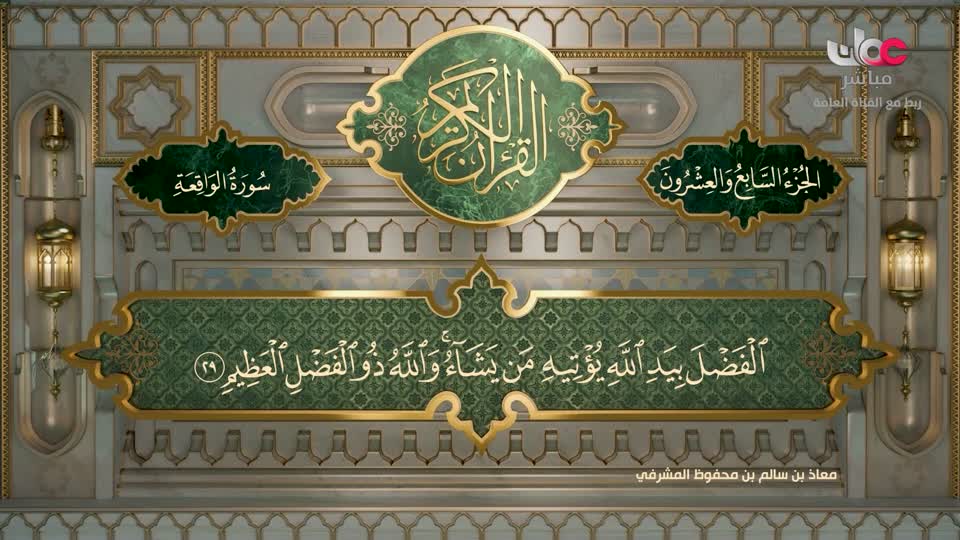 عمان
مباشر
ربط مع القناة العامة
القرآن الكريم
الجزء السابع والعشرون
سُورَةُ الوَاقِعَةِ
ٱلۡفَضۡلَ بِيَدِ ٱللَّهِ يُؤۡتِيهِ مَن يَشَآءُۚ وَٱللَّهُ ذُو ٱلۡفَضۡلِ ٱلۡعَظِيمِ ٢٩
معاذ بن سالم بن محفوظ المشرفي